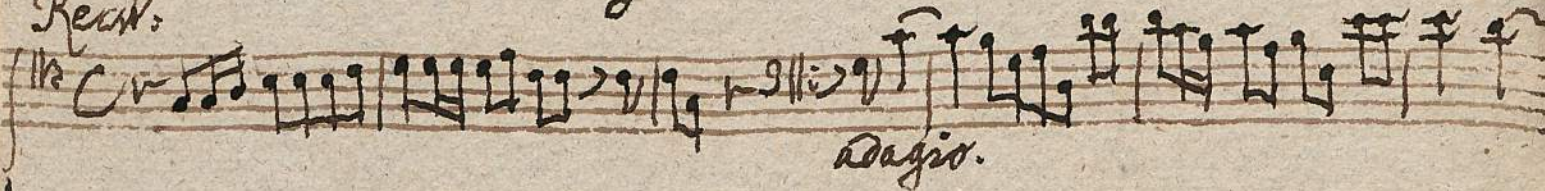 Recit:
adagio.